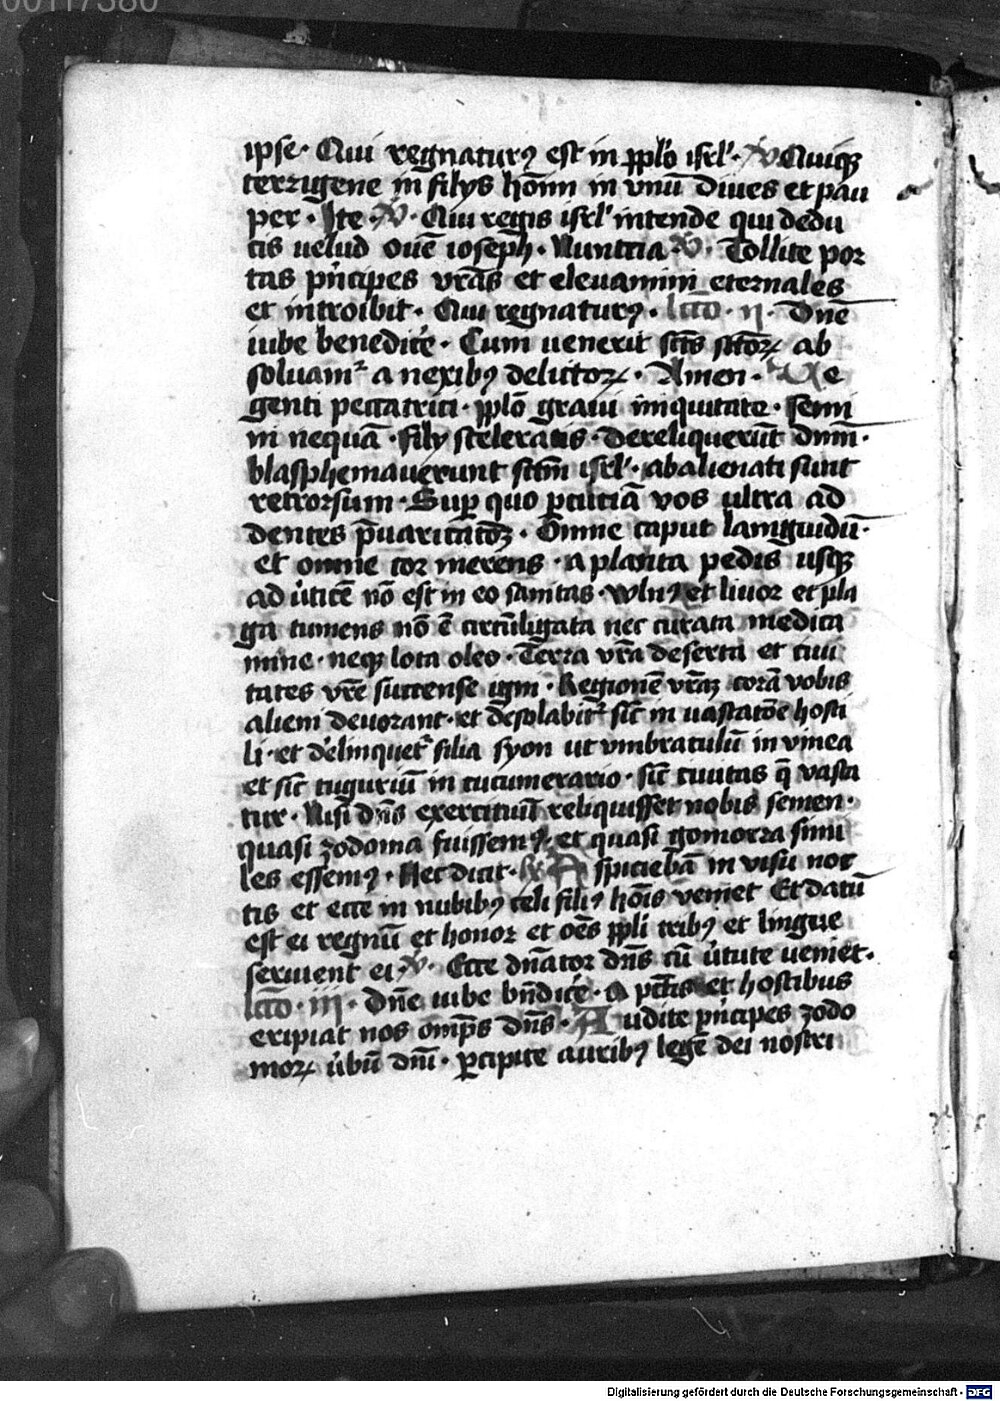 00117380
ipse · Qui regnatur9 est in pplo isrl' · V Quiq3
terrigene in filys homī in vnū diues et pau
per · Ite · V · Qui regis isrl' intende qui dedu
cis uelud ouē ioseph · Nunccia V · Tollite por
tas pncipes vrās et eleuamini eternales
et introibit · Qui regnatur9 · lcto · ij · Dne
iube benedice · Cum uenerit scts sctoꝝ ab
soluam² a nexib9 delictoꝝ · Amen · Ve
genti peccatrici · pplō graui iniquitate · semi
ni nequā · fily sceleratis · dereliquerūt dnm ·
blasphemauerunt sctm isrl' · abalienati sunt
retrorsum · Sup quo pcuciā vos ultra ad
dentes pͣuaricatōꝫ · Omne caput languidū ·
et omne cor merens · a planta pedis usqꝫ
ad uticē nō est in eo sanitas · wln9 et liuor et pla
ga tumens nō ē circūligata nec curata medica
mine · neqꝫ lota oleo · Terra vrā deserta et ciui
tates vrē succense igni · Regionē vrāꝫ corā vobis
alieni deuorant · et desolabit² sic̄ in uastatōe hosti
li · et delinquet² filia syon ut vmbraculū in vinea
et sic̄ tuguriū in cucumerario · sic̄ ciuitas q̄ vasta
tur · Nisi dn̄s exercituū reliquisset nobis semen ·
quasi zodoma fuissem9 · et quasi gomorra simi
les essem9 · Hec dicit · R Aspiciebā in visu noc
tis et ecce in nubib9 celi fili9 hoīs veniet Et datū
est ei regnū et honor et oēs ppli trib9 et lingue
seruient ei · V · Ecce dn̄ator dn̄s cū utute ueniet ·
lcto · iij · Dne iube bn̄dice · A pctīs et hostibus
eripiat nos omps dn̄s · Audite pncipes zodo
moꝝ ubū dn̄i · pcipite aurib9 legē dei nostri
Digitalisierung gefördert durch die Deutsche Forschungsgemeinschaft - DFG